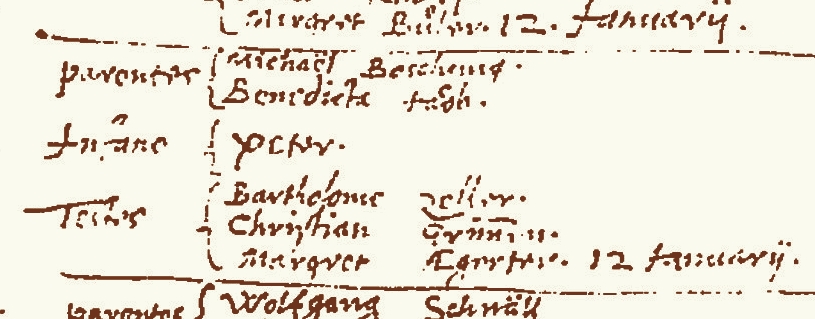 Margret 12. Januarÿ.
parentes Michaël
Benedicta
Infans Peter.
Testes Bartholome Zeller.
Christian
Margret 12 Januarÿ.
parentes Wolfgang Schnäll